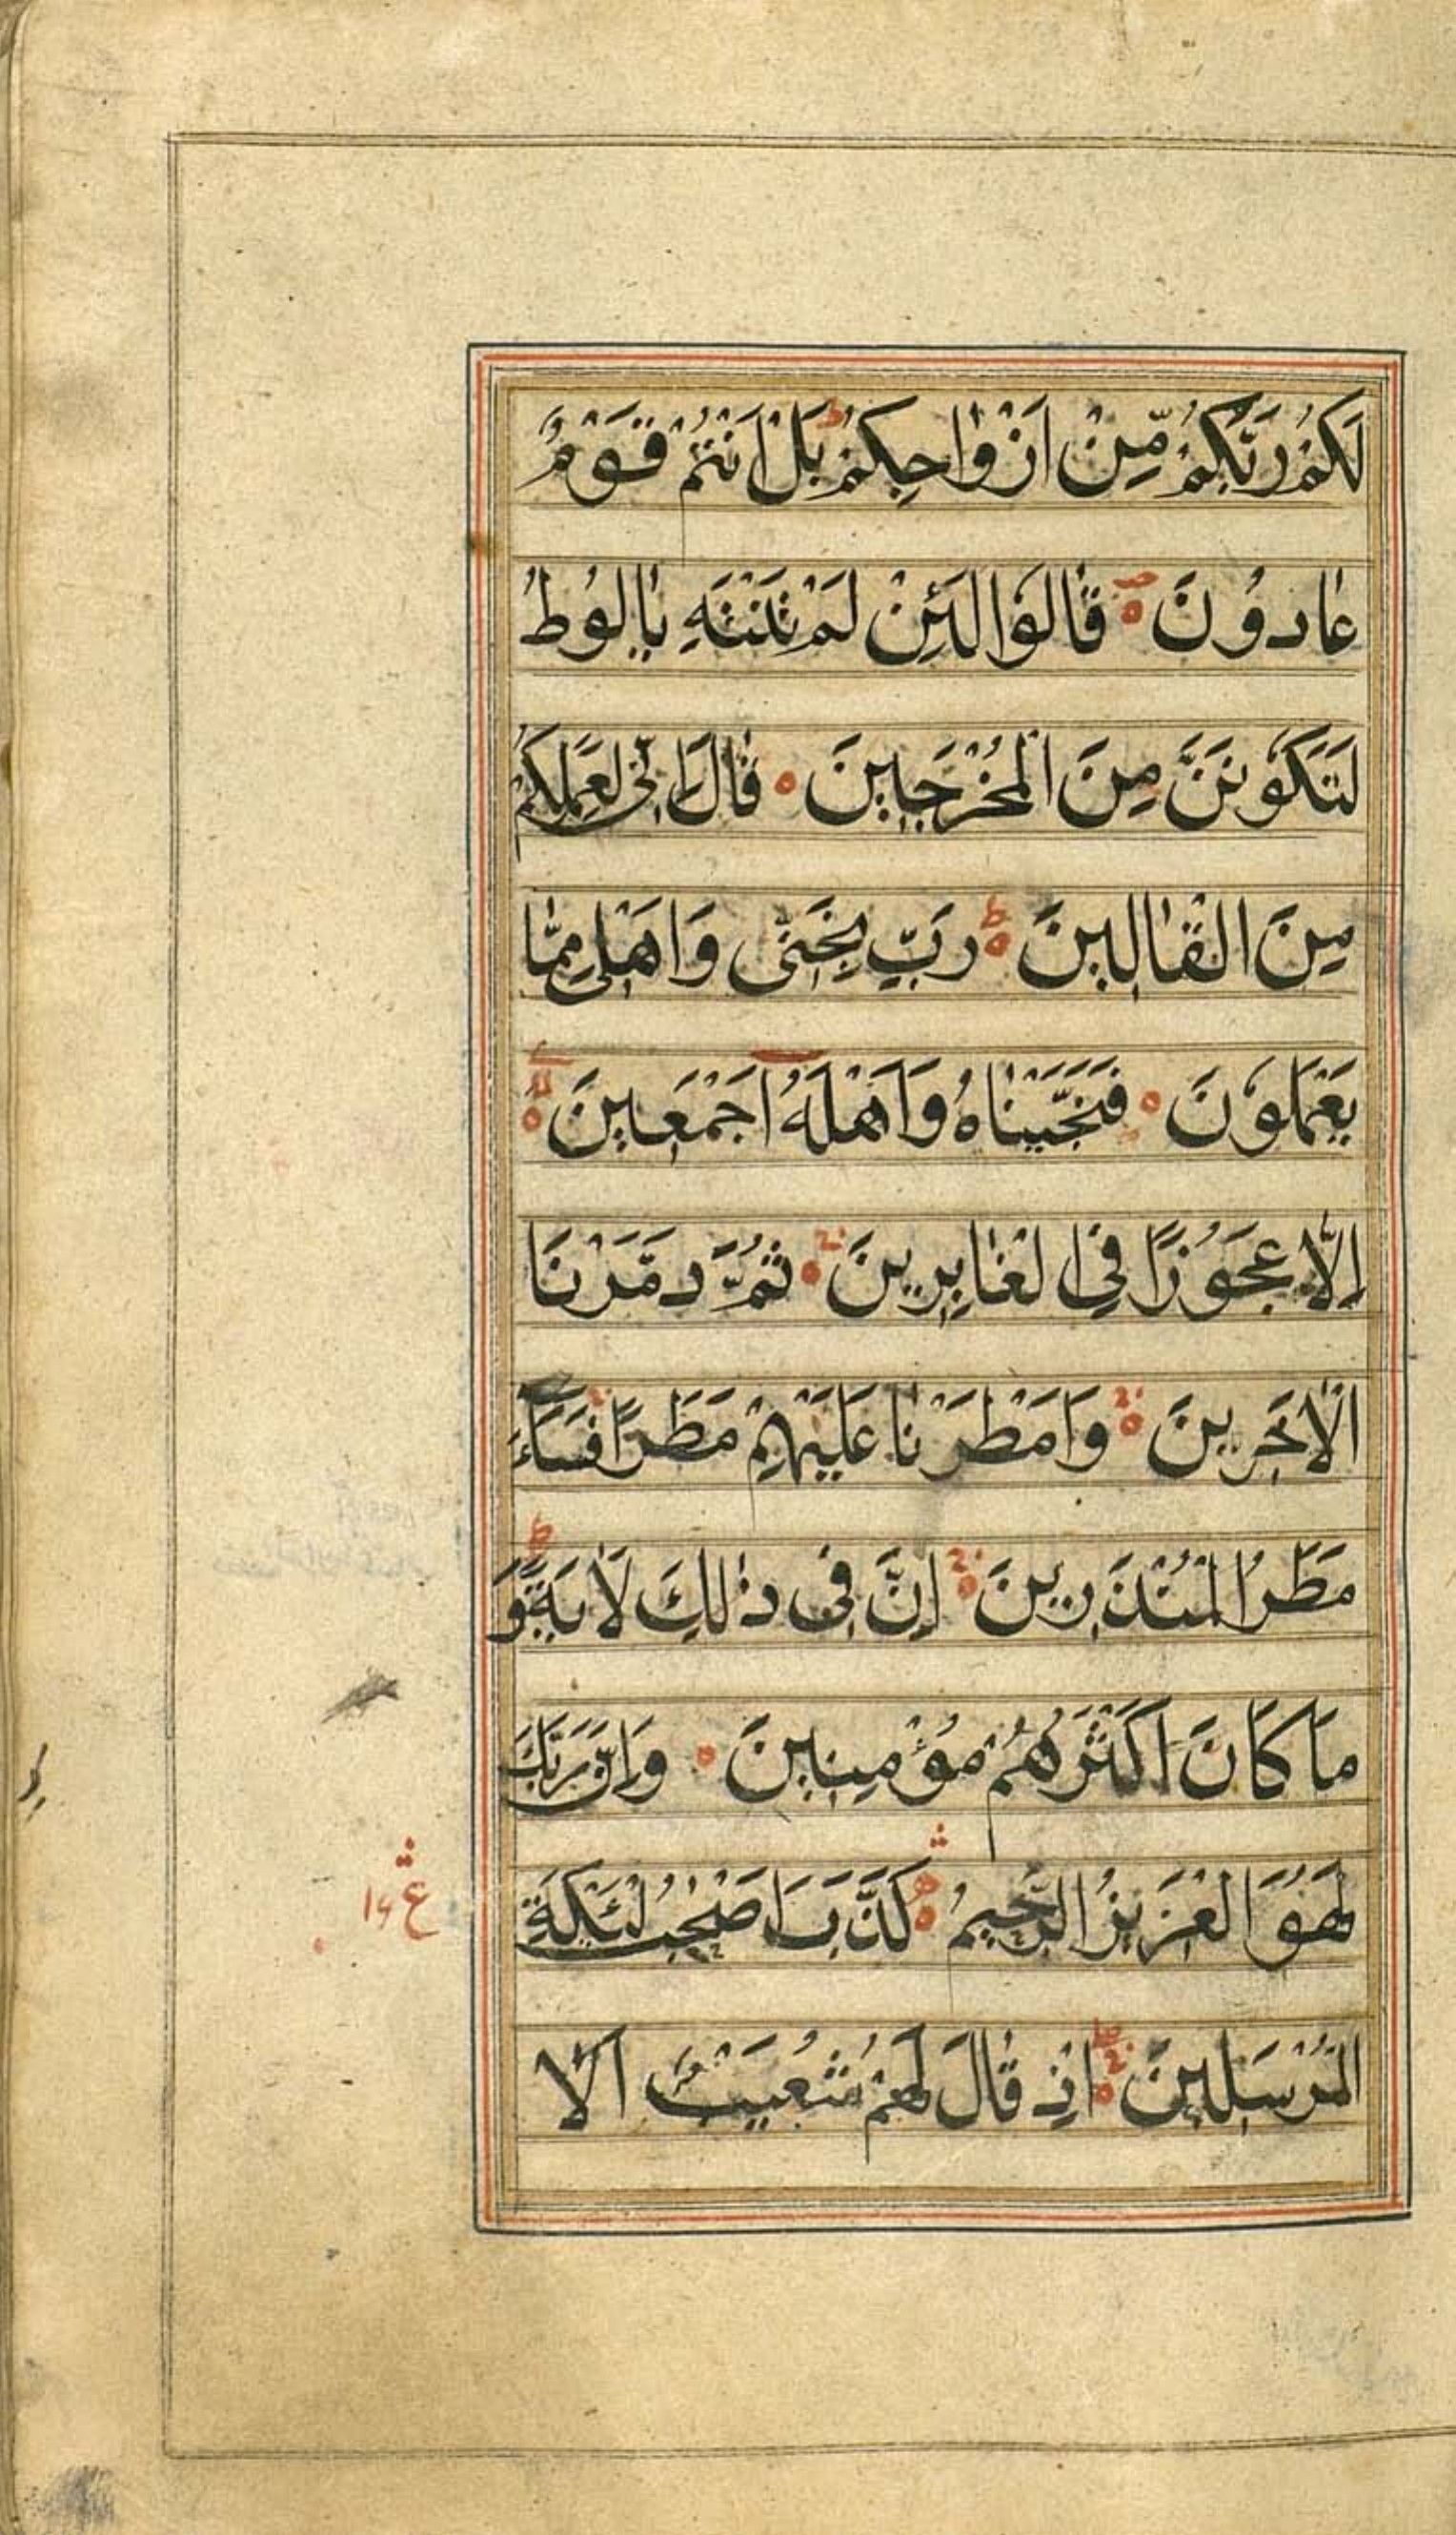 لَكُمْ رَبُّكُمْ مِّنْ اَزْوٰاجِكُمْ ط بَلْ اَنْتُمْ قَوْمٌ
عٰادُونَ ص قٰالُوْا لَئِنْ لَمْ تَنْتَهِ يٰالُوطُ
لَتَكُوْنَنَّ مِنَ الْمُخْرَجِينَ قٰالَ اِنّٖى لِعَمَلِكُمْ
مِنَ الْقٰالِينَ ط رَبِّ نَجِّنٖى وَاَهْلٖى مِمّٰا
يَعْمَلُوْنَ فَنَجَّيْنٰاهُ وَاَهْلَهُ اَجْمَعٖينَ لا
اِلّٰا عَجُوْزًا فِى الْغٰابِرِينَ ج ثُمَّ دَمَّرْنَا
الْاٰخَرِينَ ج وَاَمْطَرْنٰا عَلَيْهِمْ مَطَرًا ج فَسَاءَ
مَطَرُ الْمُنْذَرِينَ اِنَّ فٖى ذٰلِكَ لَاٰيَةً ط وَ
مَا كَانَ اَكْثَرُهُمْ مُؤْمِنٖينَ وَاِنَّ رَبَّكَ
لَهُوَ الْعَزٖيزُ الرَّحٖيمُ كَذَّبَ اَصْحٰبُ لْئَيْكَةِ
ع ١٦
الْمُرْسَلٖينَ اِذْ قٰالَ لَهُمْ شُعَيْبٌ اَلَا